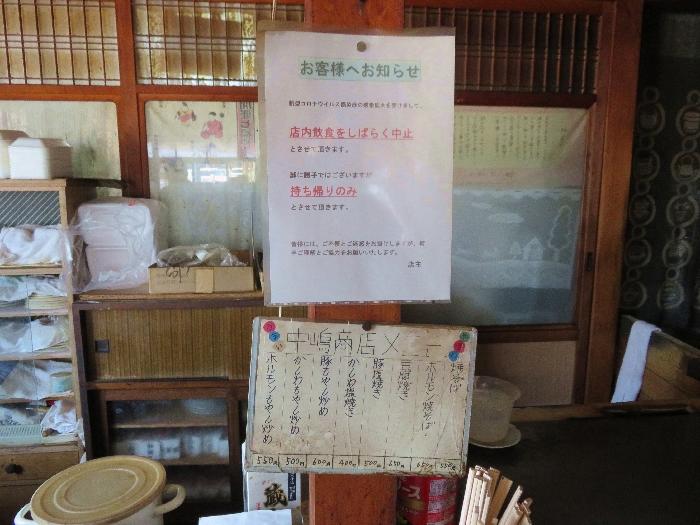 お客様へお知らせ
新型コロナウイルス感染症の感染拡大を受けまして、
店内飲食をしばらく中止
とさせて頂きます。
誠に勝手ではございますが
持ち帰りのみ
とさせて頂きます。
皆様には、ご不便とご迷惑をお掛けしますが、何
卒ご理解とご協力をお願いいたします。
店主
中嶋商店メニュー
焼そば 550
ホルモン焼そば 650
豚塩焼き 500
かしわ塩焼き 400
豚もやし炒め 600
かしわもやし炒め 500
ホルモンもやし炒め 550
蔵